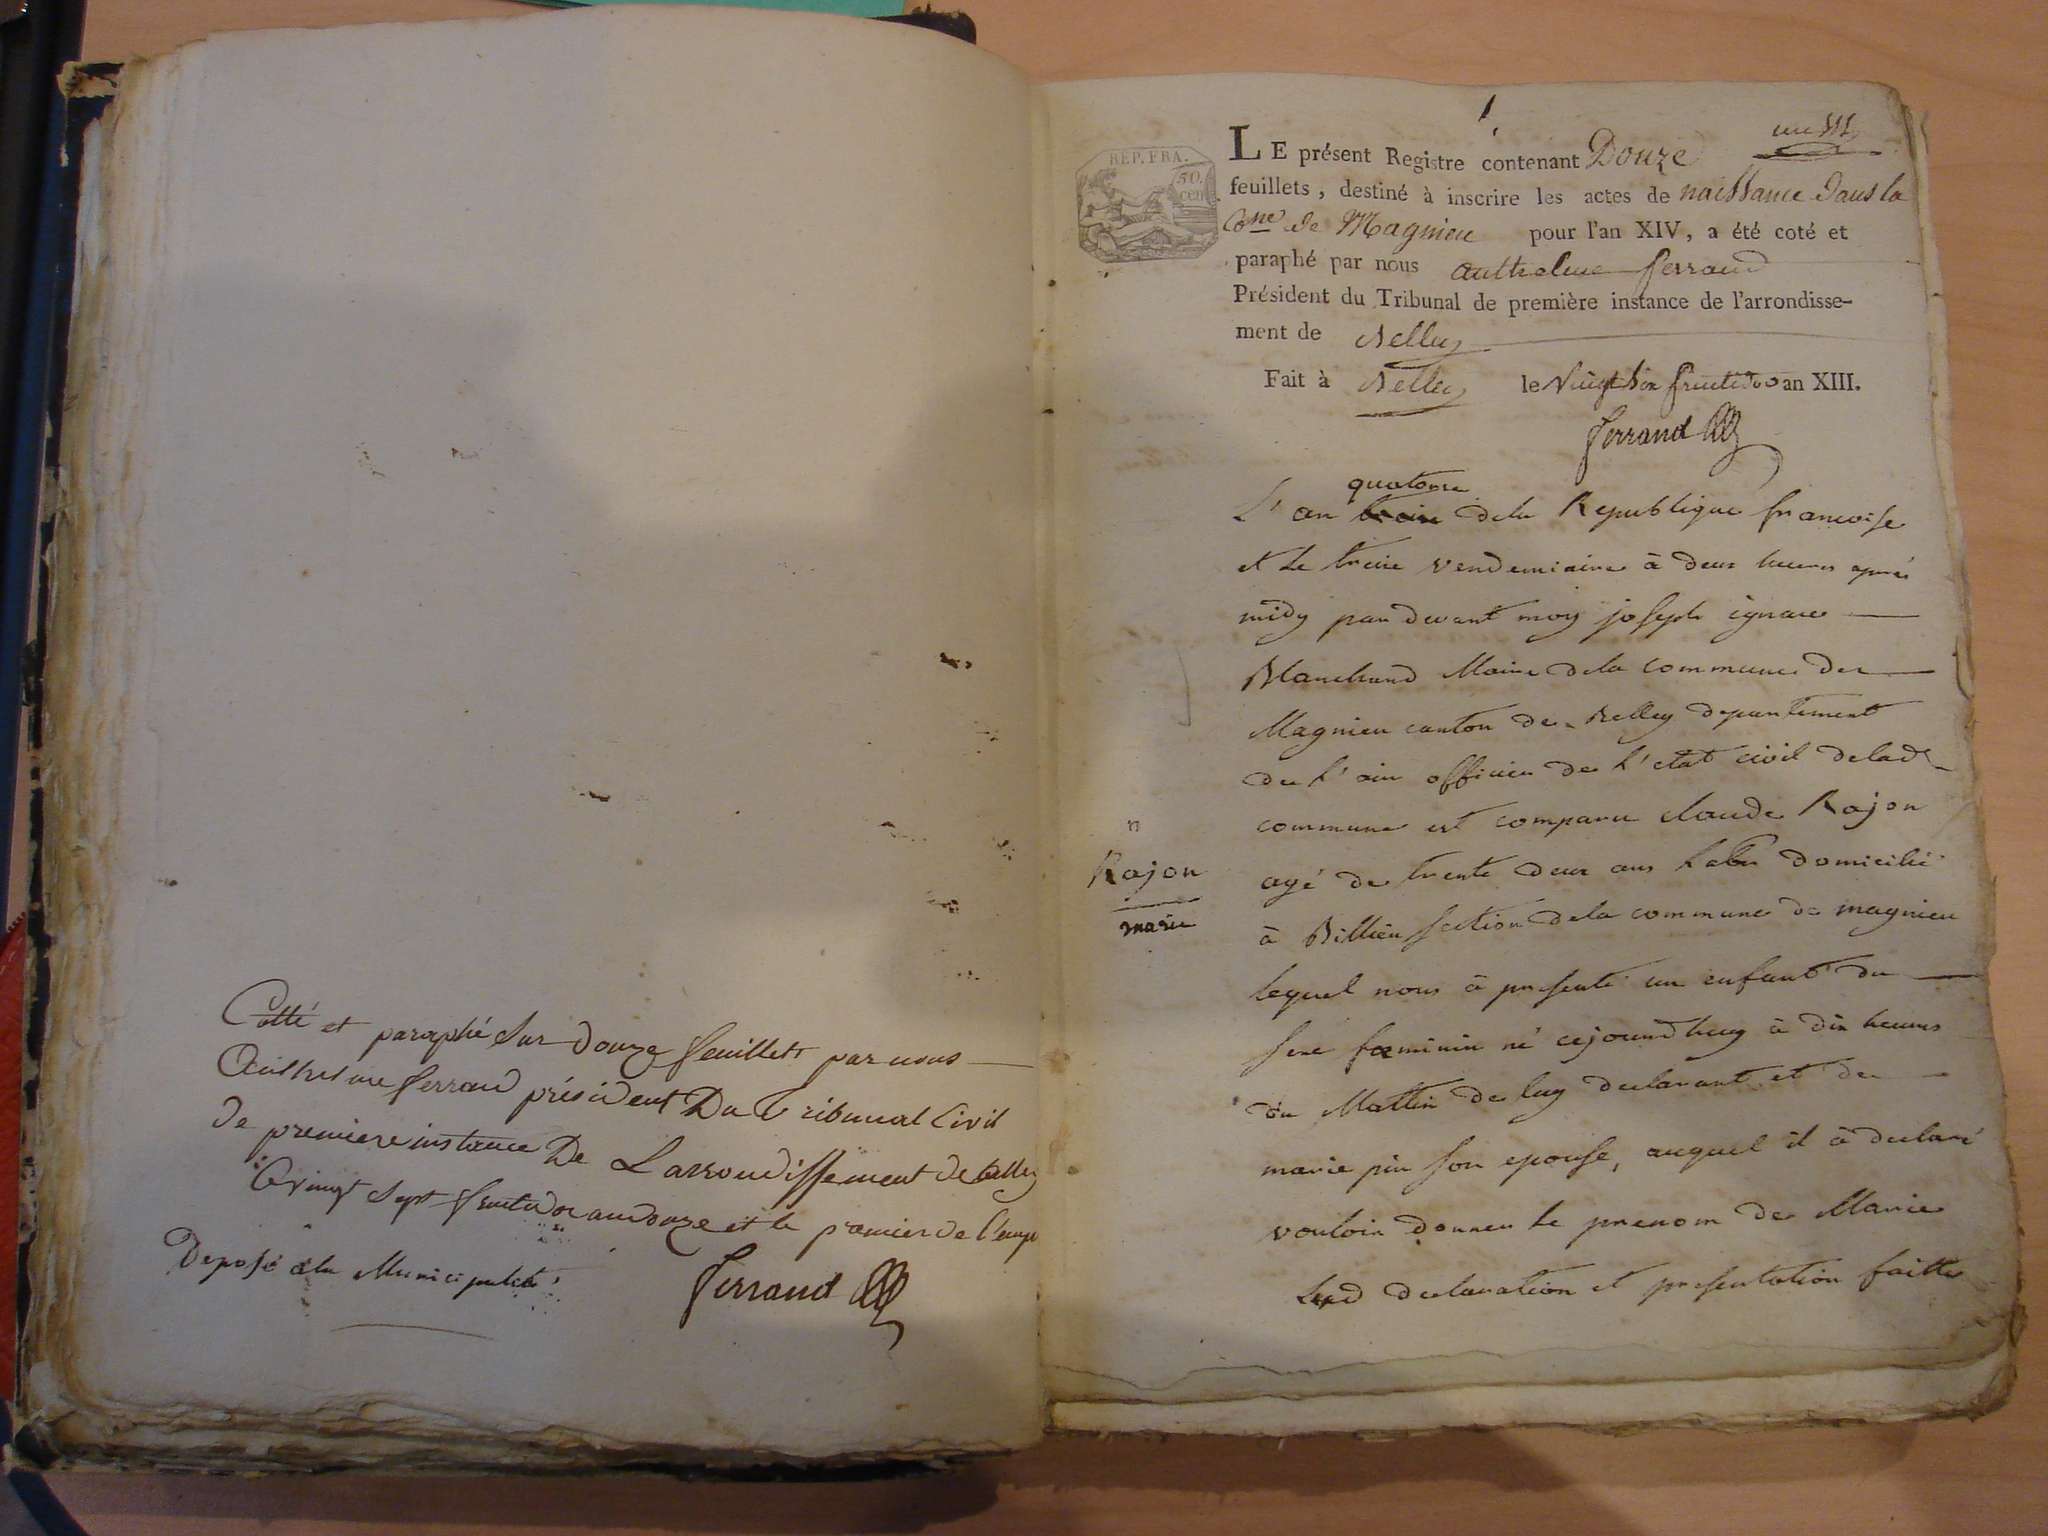 Cotté et paraphé sur douze feuillets par nous
Anthelme ferrand président Du Tribunal Civil
de premiere instance De Larrondissement de belley
Le vingt sept fructidor an douze et le premier de l'emp
Deposé a la Municipalité
ferrand
1
un
REP. FRA.
50.
cen.
LE présent Registre contenant Douze
feuillets, destiné à inscrire les actes de naissance dans la
Cone de Magnieu pour l'an XIV, a été coté et
paraphé par nous anthelme ferrand
Président du Tribunal de première instance de l'arrondisse-
ment de Belley
Fait à Belley le Vingt six fructidor an XIII.
ferrand
quatorze
L'an treize dela Republique francoise
et le treize vendemiaire à deux heures après
midy par devant moy joseph ignace
Blanchard Maire dela commune de
Magnieu canton de Belley departement
de l'ain officier de l'etat civil delad
commune est comparu claude Rajon
agé de trente deux ans labr domicilié
à Billieu section dela commune de magnieu
lequel nous à presenté un enfant du
sexe foeminin né cejourdhuy à dix heures
du Mattin de luy declarant et de
marie pin son epouse, auquel il à declaré
vouloir donner le prenom de Marie
Lesd declaration et presentation faitte
n
Rajon
marie